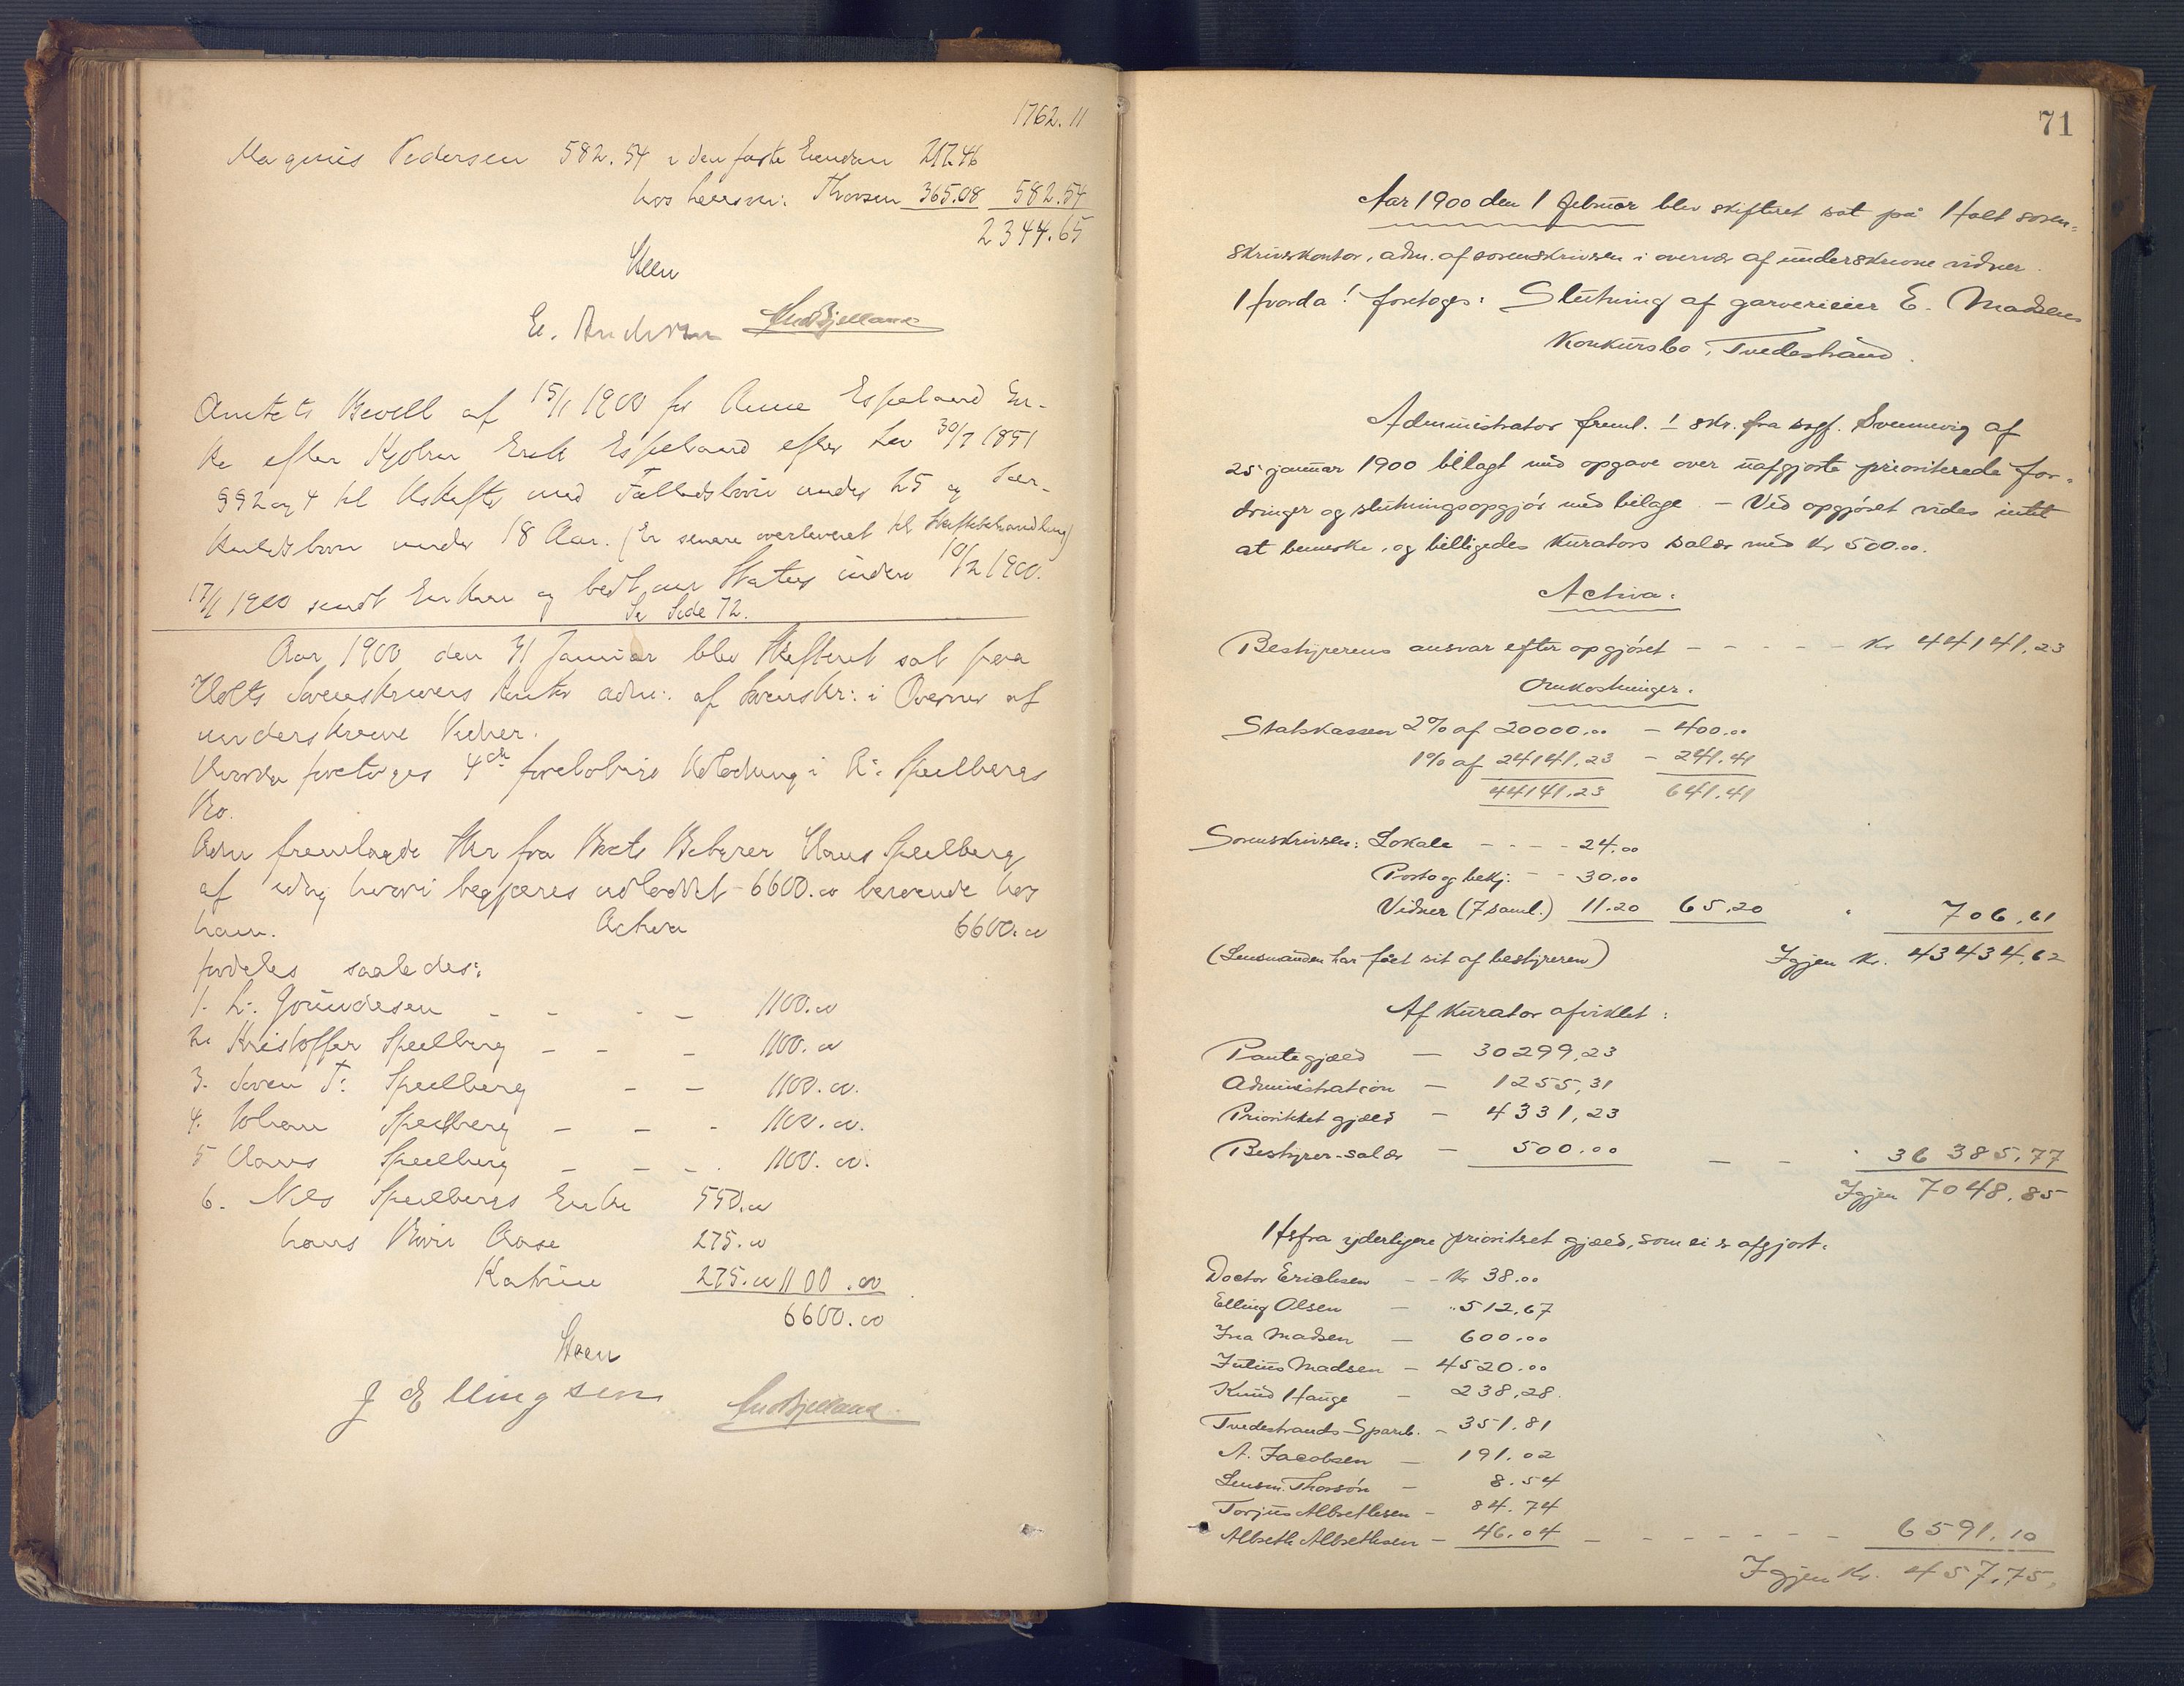 1762.11
Magnus Pedersen 582.54 i den faste Eiendom 217.46
hos lensm: Thorsen 365.08 582.54
2344.65
Steen
E. Andersen
Amtets Bevill af 15/1 1900 for Anne Espeland En-
ke efter Erik Espeland efter Lov 30/7 1851
§§ 2 og 4 til Uskifte med Fællesbørn under 25 og Sær-
kuldsbørn under 18 Aar. (Er senere overleveret til Skiftebehandling)
17/1 1900 sendt Enken og bedt om Status inden 10/2 1900.
Se Side 72.
Aar 1900 den 31 Januar blev Skifteret sat paa
Holts Sorenskrivers Kontor adm: af Sorenskr: i Overvær af
underskrevne Vidner.
Hvorda foretoges 4de foreløbige Udlodning i A: Speilbergs
Bo.
Adm fremlagde Skr fra Boets Bestyrer Claus Speilberg
af idag hvori begjæres udloddet 6600.00 beroende hos
ham. Activa 6600.00
fordeles saaledes:
1. L: Gundesen - - - - 1100.00
2. Kristoffer Speilberg - - - 1100.00
3. Søren T: Speilberg - - 1100.00.
4. Johan Speilberg - - - 1100.00.
5 Claus Speilberg - - - . 1100.00.
6. Nils Speilbergs Enke 550.00
hans Børn Aase 275.00
Katrine 275.00 1100.00
6600.00
Steen
J Ellingsen
71
Aar 1900 den 1 februar blev skifteret sat på Holt soren-
skriverkontor, adm. af sorenskriveren i overvær af underskrevne vidner.
Hvorda! foretoges: Slutning af garverieier E. Madsens
Konkursbo, Tvedestrand.
Administrator freml. 1 skr. fra sagf. Svennevig af
25 januar 1900 bilagt med opgave over uafgjorte prioriterede for-
dringer og slutningsopgjör med bilage. - Ved opgjöret vides intet
at bemerke, og billigedes Kurators salær med Kr 500.00.
Activa:
Bestyrerens ansvar efter opgjöret - - - - - Kr 44141.23
Omkostninger.
Statskassen 2% af 20000.00 - 400.00
1% af 24141.23 - 241.41
44141.23 641.41
Sorenskriveren: Lokale - - - - 24.00
Porto og bekj: - - 30.00
Vidner (7 saml.) 11.20 65.20 " 706.61
(Lensmanden har fået sit af bestyreren) Igjen Kr. 43434.62
Af Kurator afviklet:
Pantegjæld - 30299,23
Administration - 1255,31
Prioritet gjæld - 4331,23
Bestyrer-salær - 500.00 - - " 36385,77
Igjen 7048.85
Hsfra yderligere prioritet gjæld, som ei er afgjort:
Doctor Erichsen - - Kr 38.00
Elling Olsen - " 512,67
Ina Madsen - 600.00
Julius Madsen - 4520.00
Knud Hauge - 238,28.
Tvedestrands Spareb. - 351.81
A. Jacobsen - 191.02
Lensm. Thorsön - 8.54
Torjus Albrethsen - 84.74
Albreth Albrethsen - 46.04 - - - - - - - 6591.10
Igjen Kr. 457,75,